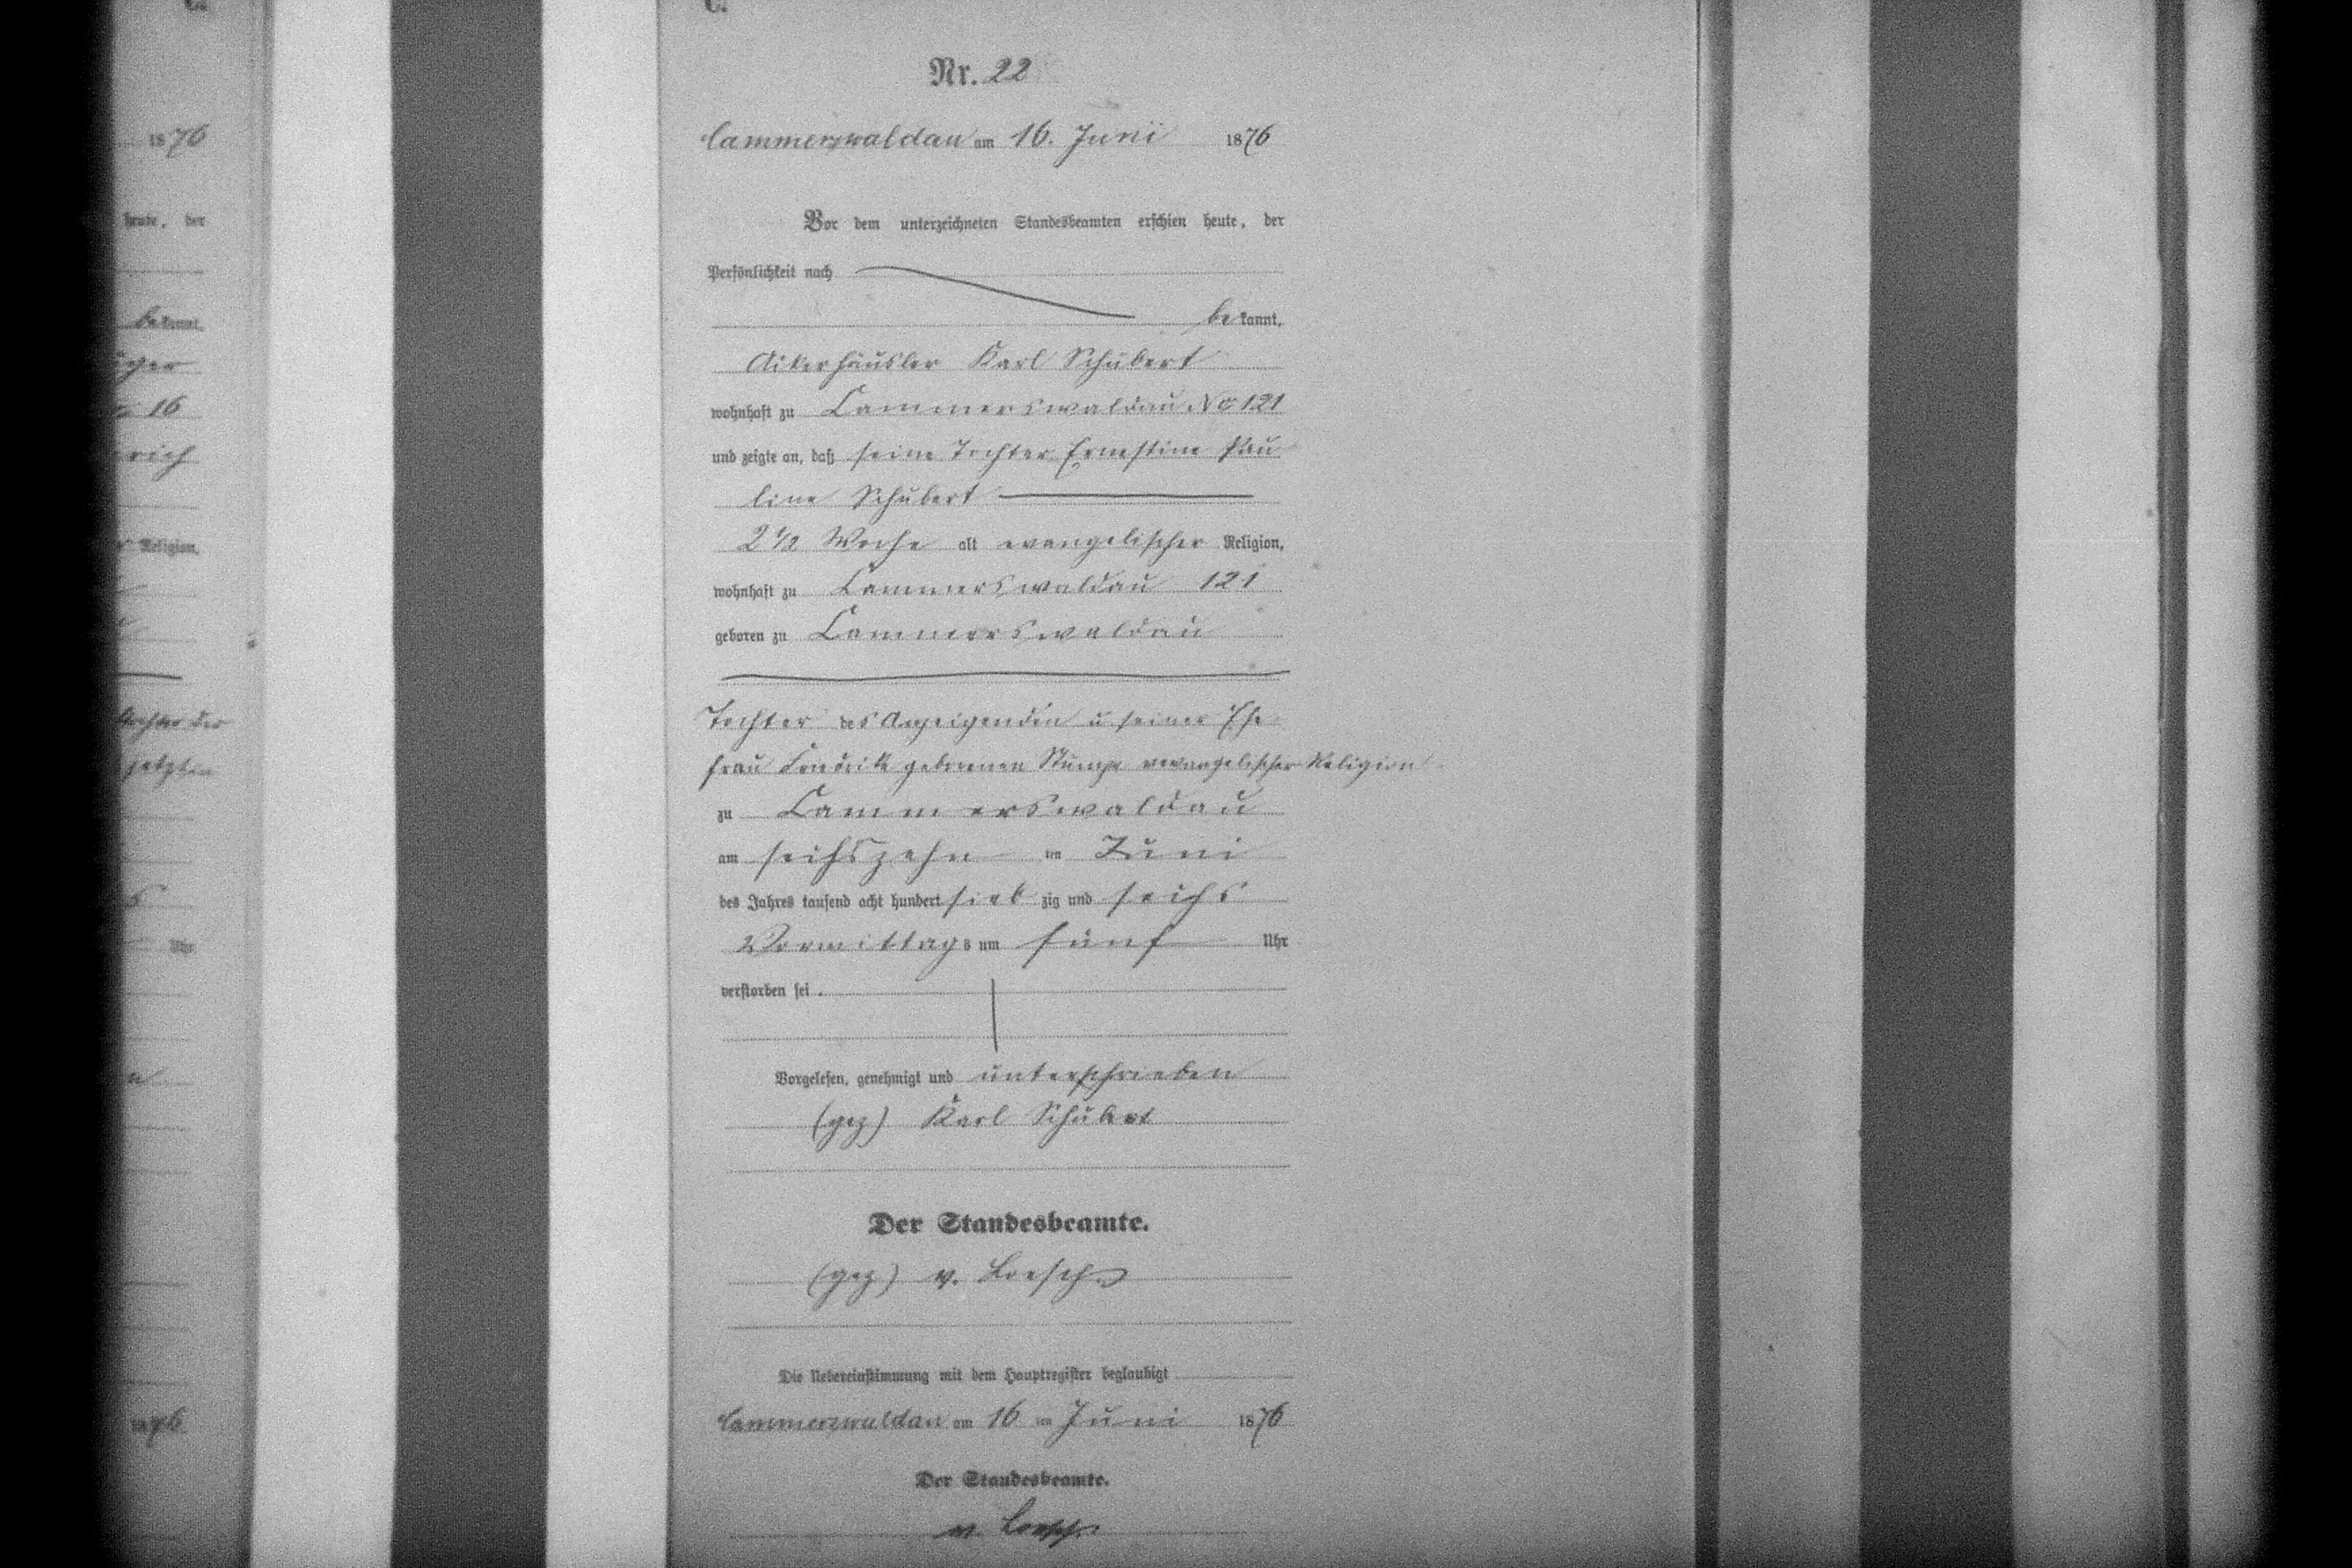 C.
Nr. 22
Cammerswaldau am 16. Juni 1876
Vor dem unterzeichneten Standesbeamten erschien heute, der
Persönlichkeit nach
bekannt,
Ackerhäusler Karl Schubert
wohnhaft zu Cammerswaldau No 121
und zeigte an, daß seine Tochter Ernestine Pau
line Schubert
2 1/2 Woche alt evangelischer Religion,
wohnhaft zu Cammerswaldau 121
geboren zu Cammerswaldau
Tochter des Anzeigenden u seiner Ehe
frau geborenen evangelischer Religion
zu Cammerswaldau
am sechszehn ten Juni
des Jahres tausend acht hundert sieb zig und sechs
Vormittags um fünf Uhr
verstorben sei.
Vorgelesen, genehmigt und unterschrieben
(gez) Karl Schubert
Der Standesbeamte.
(gez) v. Loesch
Die Uebereinstimmung mit dem Hauptregister beglaubigt
Cammerswaldau am 16 ten Juni 1876
Der Standesbeamte.
v. Loesch
1876
heute, der
bekannt,
16
Religion,
Uhr
1876